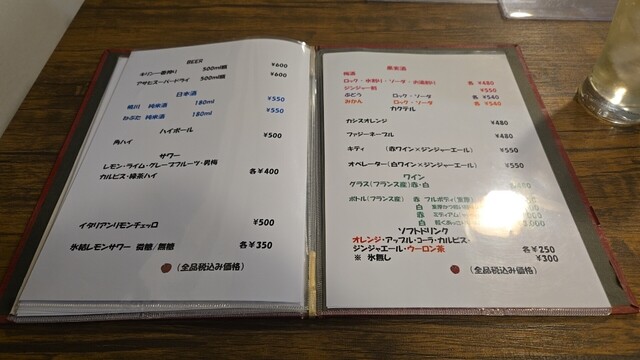 BEER
キリン一番搾り 500ml瓶 ¥600
アサヒスーパードライ 500ml瓶 ¥600
日本酒
純米酒 180ml ¥550
ねぶた 純米酒 180ml ¥550
ハイボール
角ハイ ¥500
サワー
レモン・ライム・グレープフルーツ・男梅
カルピス・緑茶ハイ 各¥400
イタリアンリモンチェッロ ¥500
氷結レモンサワー 微糖/無糖 各¥350
(全品税込み価格)
果実酒
梅酒
ロック・水割り・ソーダ・お湯割り 各 ¥480
ジンジャー割 ¥550
ぶどう ロック・ソーダ 各 ¥540
みかん ロック・ソーダ 各 ¥540
カクテル
カシスオレンジ ¥480
ファジーネーブル ¥480
キティ (赤ワイン×ジンジャーエール) ¥550
オペレーター(白ワイン×ジンジャーエール) ¥550
ワイン
グラス(フランス産)赤・白
ボトル(フランス産) 赤 フルボディ
白
赤 ミディアム
白
ソフトドリンク
オレンジ・アップル・コーラ・カルピス・
ジンジャエール・ウーロン茶 各¥250
※ 氷無し ¥300
(全品税込み価格)